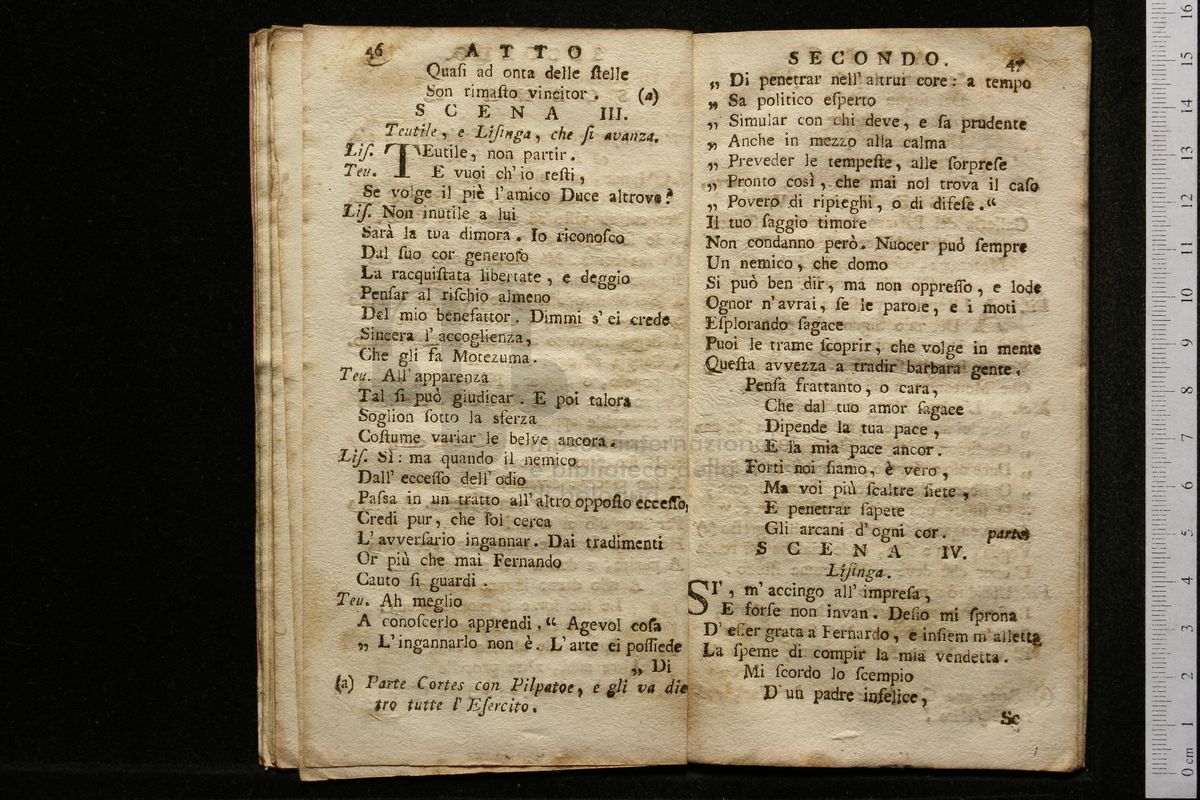 46 ATTO
Quaſi ad onta delle ſtelle
Son rimaſto vincitor. (a)
SCENA III.
Teutile, e Liſinga, che ſi avanza.
Liſ. TEutile, non partir.
Teu. E vuoi ch'io reſti,
Se volge il piè l'amico Duce altrove?
Liſ. Non inutile a lui
Sarà la tua dimora. Io riconoſco
Dal ſuo cor generoſo
La racquiſtata libertate, e deggio
Penſar al riſchio almeno
Del mio benefattor. Dimmi s'ei crede
Sincera l'accoglienza,
Che gli fa Motezuma.
Teu. All'apparenza
Tal ſi può giudicar. E poi talora
Soglion ſotto la sferza
Coſtume variar le belve ancora.
Liſ. Sì: ma quando il nemico
Dall'ecceſſo dell'odio
Paſsa in un tratto all'altro oppoſto ecceſſo,
Credi pur, che ſol cerca
L'avverſario ingannar. Dai tradimenti
Or più che mai Fernando
Cauto ſi guardi.
Teu. Ah meglio
A conoſcerlo apprendi. “ Agevol coſa
„ L'ingannarlo non è. L'arte ei poſſiede
„ Di
(a) Parte Cortes con Pilpatoe, e gli va die
tro tutte l'Eſercito.
SECONDO. 47
„ Di penetrar nell'altrui core: a tempo
„ Sa politico eſperto
„ Simular con chi deve, e ſa prudente
„ Anche in mezzo alla calma
„ Preveder le tempeſte, alle ſorpreſe
„ Pronto così, che mai nol trova il caſo
„ Povero di ripieghi, o di difeſe.“
Il tuo ſaggio timore
Non condanno però. Nuocer può ſempre
Un nemico, che domo
Si può ben dir, ma non oppreſſo, e lode
Ognor n'avrai, ſe le parole, e i moti
Eſplorando ſagace
Puoi le trame ſcoprir, che volge in mente
Queſta avvezza a tradir barbara gente.
Penſa frattanto, o cara,
Che dal tuo amor ſagace
Dipende la tua pace,
E la mia pace ancor.
Forti noi ſiamo, è vero,
Ma voi più ſcaltre ſiete,
E penetrar ſapete
Gli arcani d'ogni cor. parte
SCENA IV.
Liſinga.
SI', m'accingo all'impreſa,
E forſe non invan. Deſio mi ſprona
D'eſſer grata a Fernardo, e inſiem m'alletta
La ſpeme di compir la mia vendetta.
Mi ſcordo lo ſcempio
D'un padre infelice,
Se